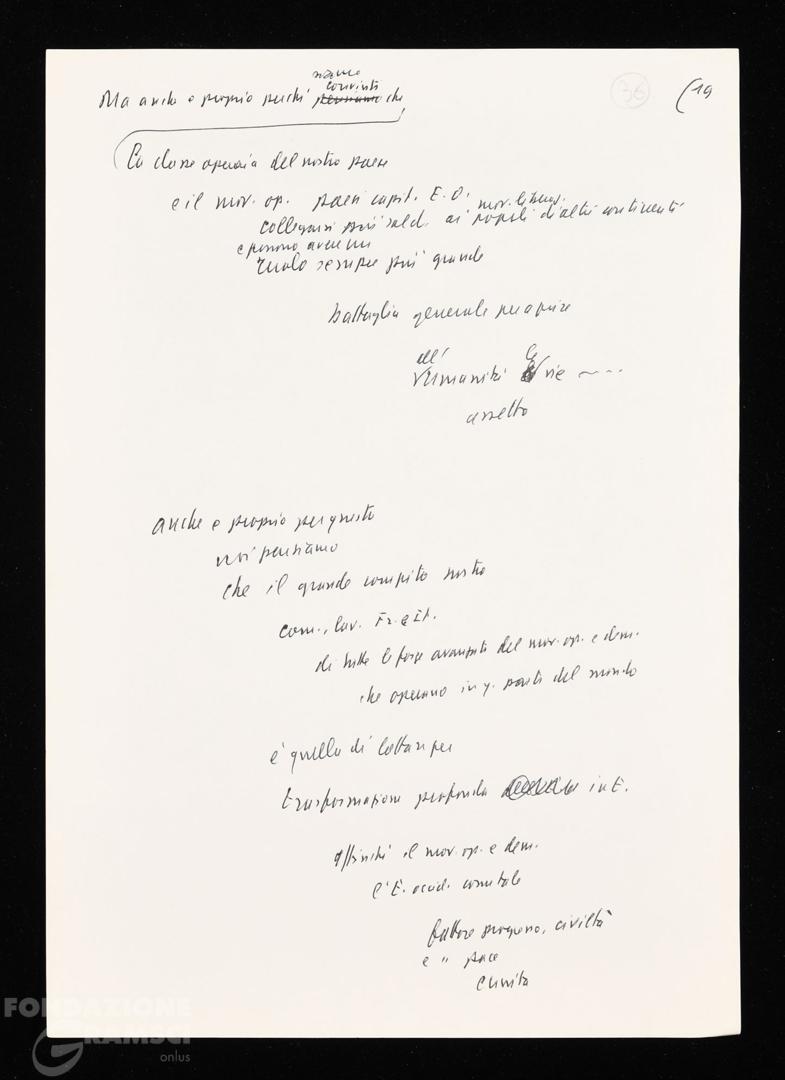 36
(19
siamo
convinti
Ma anche e proprio perché pensiamo che
La classe operaia del nostro paese
e il mov. op. paesi capit. E. O.
mov. liberaz.
collegarsi più sald. ai popoli d'altri continenti
e possono avere un
ruolo sempre più grande
battaglia generale per aprire
all'
umanità le vie ~ - - -
assetto
anche e proprio per questo
noi pensiamo
che il grande compito nostro
com., lav. Fr. e It.
di tutte le forze avanzate del mov. op. e dem.
che operano in q. parte del mondo
è quello di lottare per
trasformazione profonda in E.
affinché il mov. op. e dem.
l'E. occid. come tale
fattore progresso, civiltà
e " pace
e unità
FONDAZIONE
GRAMSCI
onlus